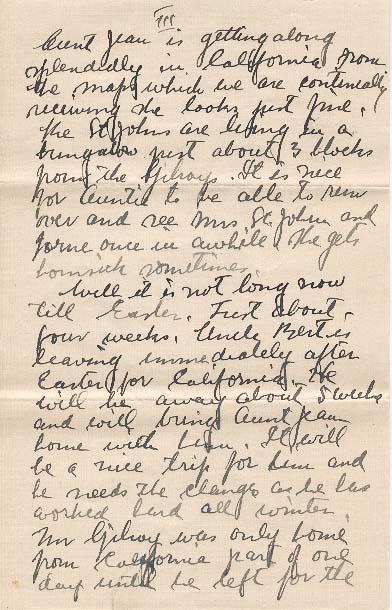 III
Aunt Jean is getting along
splendedly in California from
the snaps which we are continually
receiving she looks just fine.
The St Johns are living in a
bungalow just about 3 blocks
from the Gilroys. It is nice
for Auntie to be able to run
over and see Mrs St. John and
once in awhile. She gets
homesick sometimes.
Well it is not long now
till Easter. Just about
four weeks. Uncle Bert is
leaving immediately after
Easter for California. He
will be away about 5 weeks
and will bring Aunt Jean
home with him. It will
be a nice trip for him and
he needs the change as he has
worked hard all winter.
Mr Gilroy was only home
from California part of one
day until he left for the